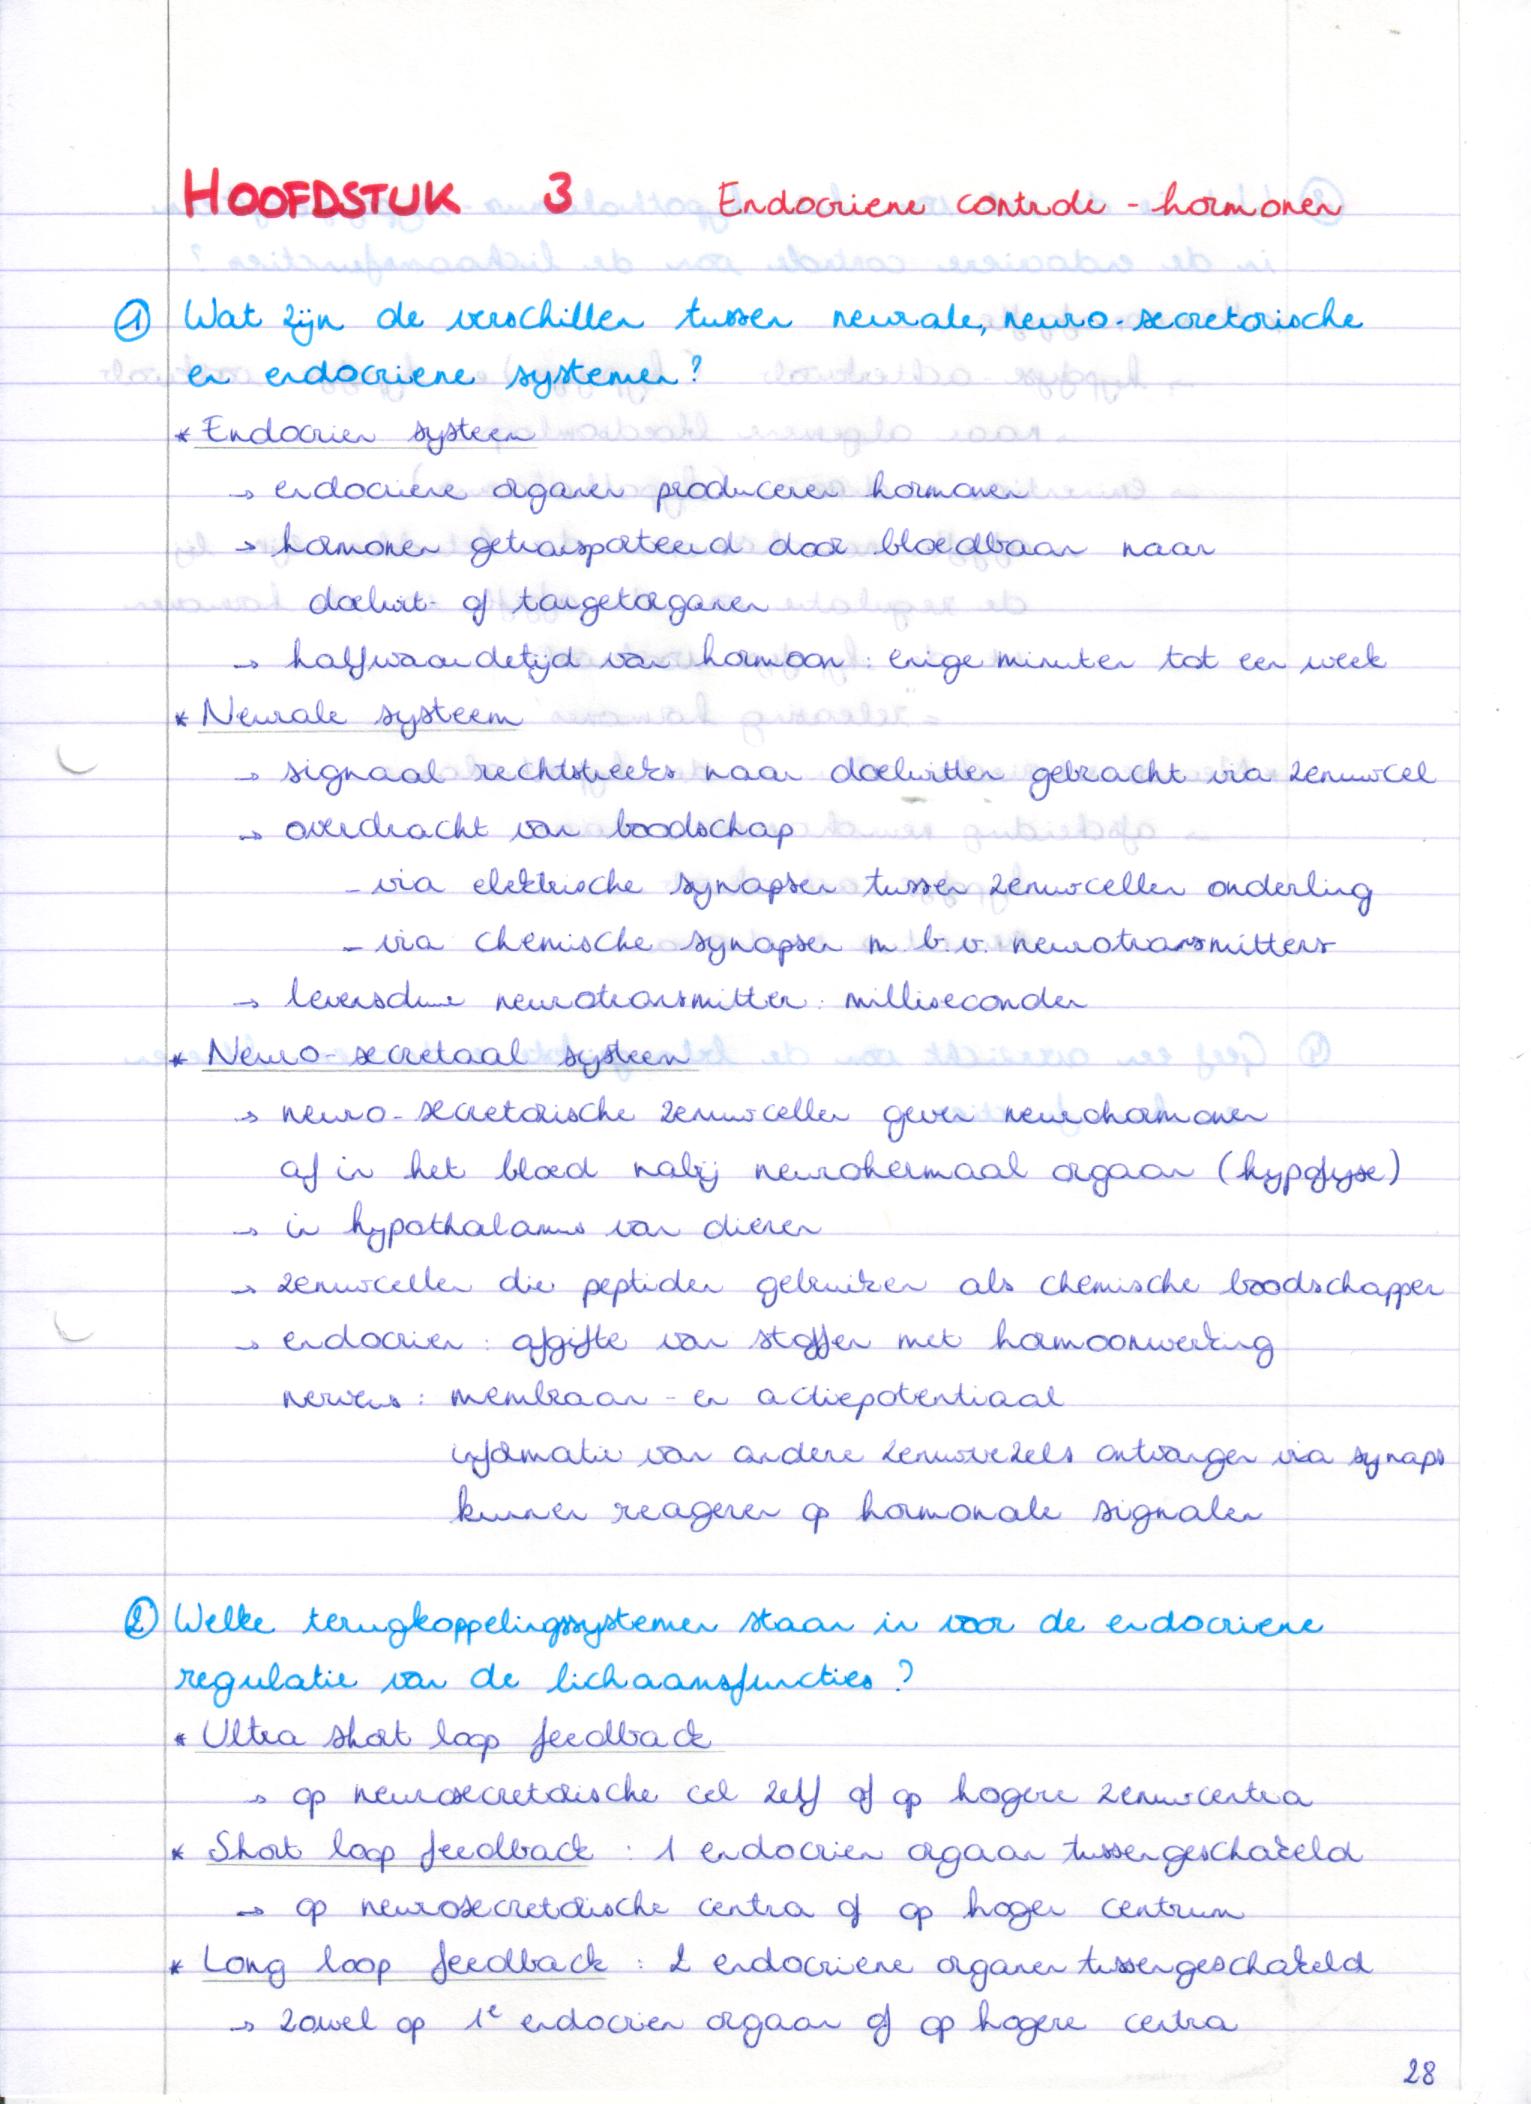 HOOFDSTUK 3 Endocriene controle - hormonen
① Wat zijn de verschillen tussen neurale, neuro-secretorische
en endocriene systemen?
* Endocrien systeem
→ endocriene organen produceren hormonen
→ hormonen getransporteerd door bloedbaan naar
doelwit- of targetorganen
→ halfwaardetijd van hormoon: enige minuten tot een week
* Neurale systeem
→ signaal rechtstreeks naar doelwitten gebracht via zenuwcel
→ overdracht van boodschap
- via elektrische synapsen tussen zenuwcellen onderling
- via chemische synapsen m.b.v. neurotransmitters
→ levensduur neurotransmitter: milliseconden
* Neuro-secretaal systeem
→ neuro-secretorische zenuwcellen geven neurohormonen
af in het bloed nabij neurohermaal orgaan (hypofyse)
→ in hypothalamus van dieren
→ zenuwcellen die peptiden gebruiken als chemische boodschapper
→ endocrien: afgifte van stoffen met hormoonwerking
nerveus: membraan- en actiepotentiaal
informatie van andere zenuwvezels ontvangen via synaps
kunnen reageren op hormonale signalen
② Welke terugkoppelingssystemen staan in voor de endocriene
regulatie van de lichaamsfuncties?
* Ultra short loop feedback
→ op neurosecretorische cel zelf of op hogere zenuwcentra
* Short loop feedback: 1 endocrien orgaan tussengeschakeld
→ op neurosecretorische centra of op hoger centrum
* Long loop feedback: 2 endocriene organen tussengeschakeld
→ zowel op 1e endocrien orgaan of op hogere centra
28